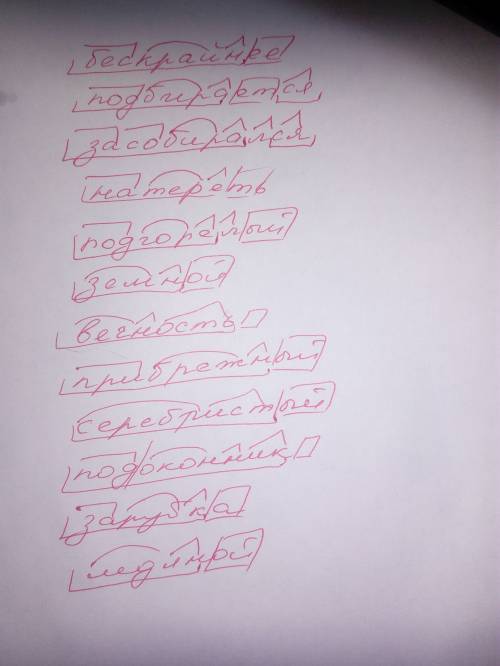 бескрайнее
подбирается
засобирался
натереть
подгорелый
земной
вечность
прибрежный
серебристый
подоконник
зарубка
ледяной